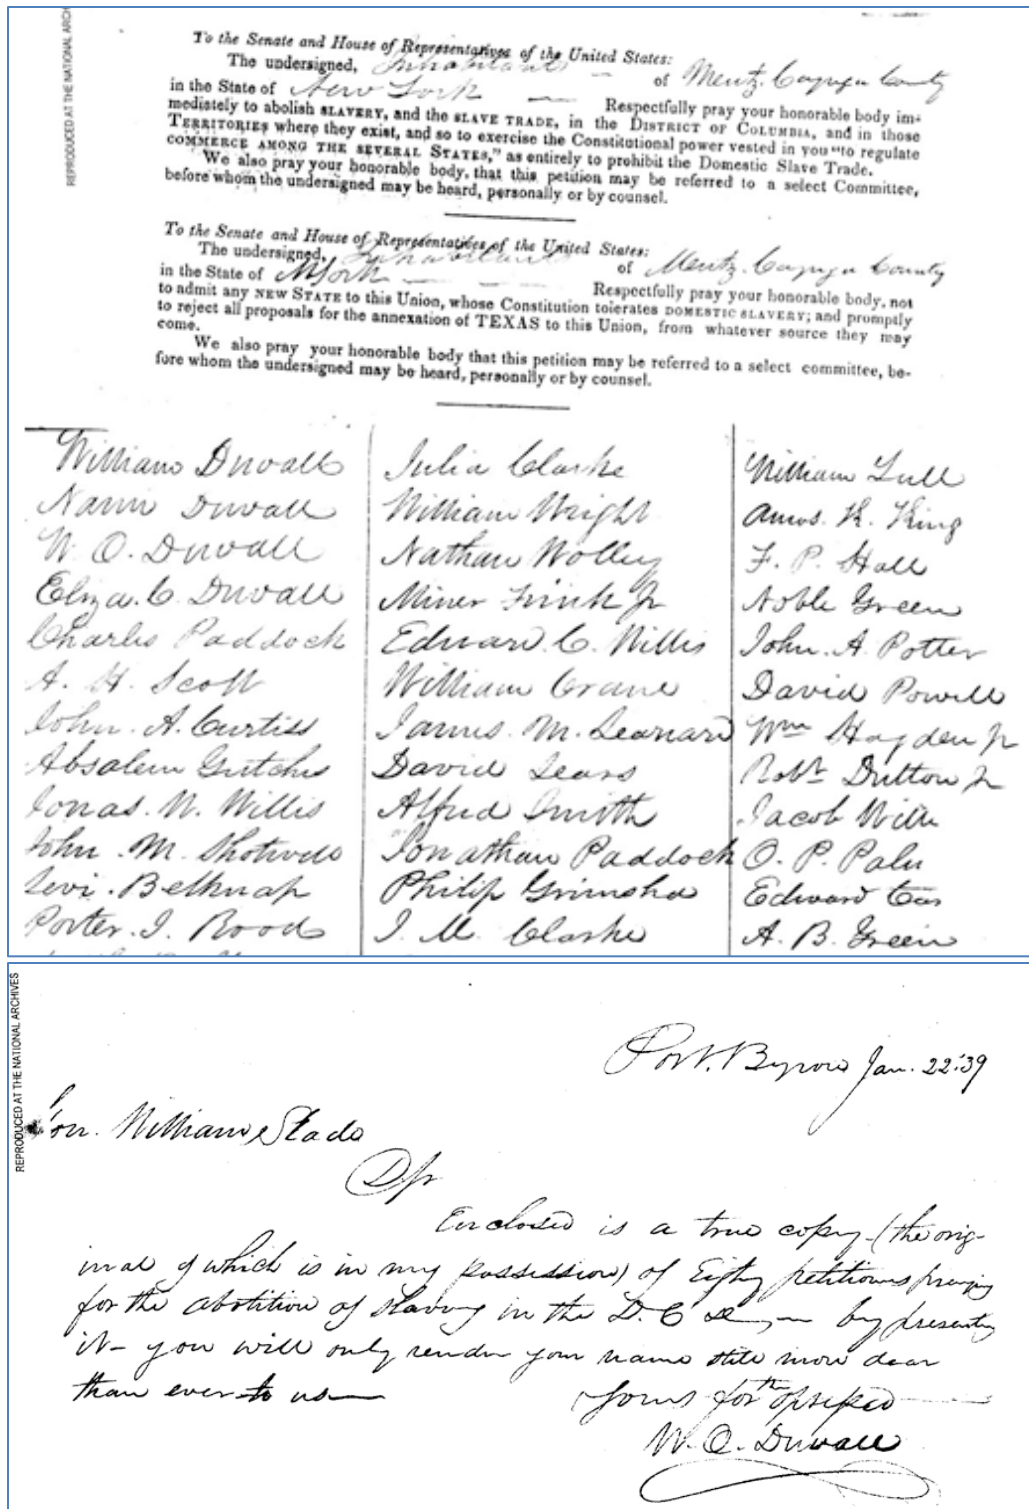 REPRODUCED AT THE NATIONAL ARCH
To the Senate and House of Representatives of the United States:
The undersigned, Inhabitants of Mentz Cayuga County
in the State of New York Respectfully pray your honorable body im-
mediately to abolish SLAVERY, and the SLAVE TRADE, in the DISTRICT OF COLUMBIA, and in those
TERRITORIES where they exist, and so to exercise the Constitutional power vested in you "to regulate
COMMERCE AMONG THE SEVERAL STATES," as entirely to prohibit the Domestic Slave Trade.
We also pray your honorable body, that this petition may be referred to a select Committee,
before whom the undersigned may be heard, personally or by counsel.
To the Senate and House of Representatives of the United States:
The undersigned, Inhabitants of Mentz Cayuga County
in the State of N York Respectfully pray your honorable body, not
to admit any NEW STATE to this Union, whose Constitution tolerates DOMESTIC SLAVERY; and promptly
to reject all proposals for the annexation of TEXAS to this Union, from whatever source they may
come.
We also pray your honorable body that this petition may be referred to a select committee, be-
fore whom the undersigned may be heard, personally or by counsel.
William Duvall
Duvall
W. O. Duvall
Eliza. C. Duvall
Charles Paddock
A. H. Scott
John. A. Curtiss
Absalem
Jonas. W. Willis
John. M. Shotwell
Levi. Belknap
Porter. I. Rood
Julia Clarke
William Wright
Nathan Wolley
Miner Jr
Edward C. Willis
William Crane
James. M. Leonard
David Sears
Alfred Smith
Jonathan Paddock
Philip
J. M. Clarke
William Lull
Amos. K. King
F. P. Hall
Noble Green
John. A. Potter
David Powell
Wm Hayden Jr
Robt Dutton Jr
Jacob
O. P.
Edward
A. B. Green
REPRODUCED AT THE NATIONAL ARCHIVES
Port. Byron Jan. 22. 39
Hon. William Slade
Dr Sr
Enclosed is a true copy (the orig-
inal of which is in my possession) of Eighty petitioners praying
for the abolition of slavery in the D. C by presenting
it - you will only render your name still more dear
than ever to us
Yours for the
W. O. Duvall